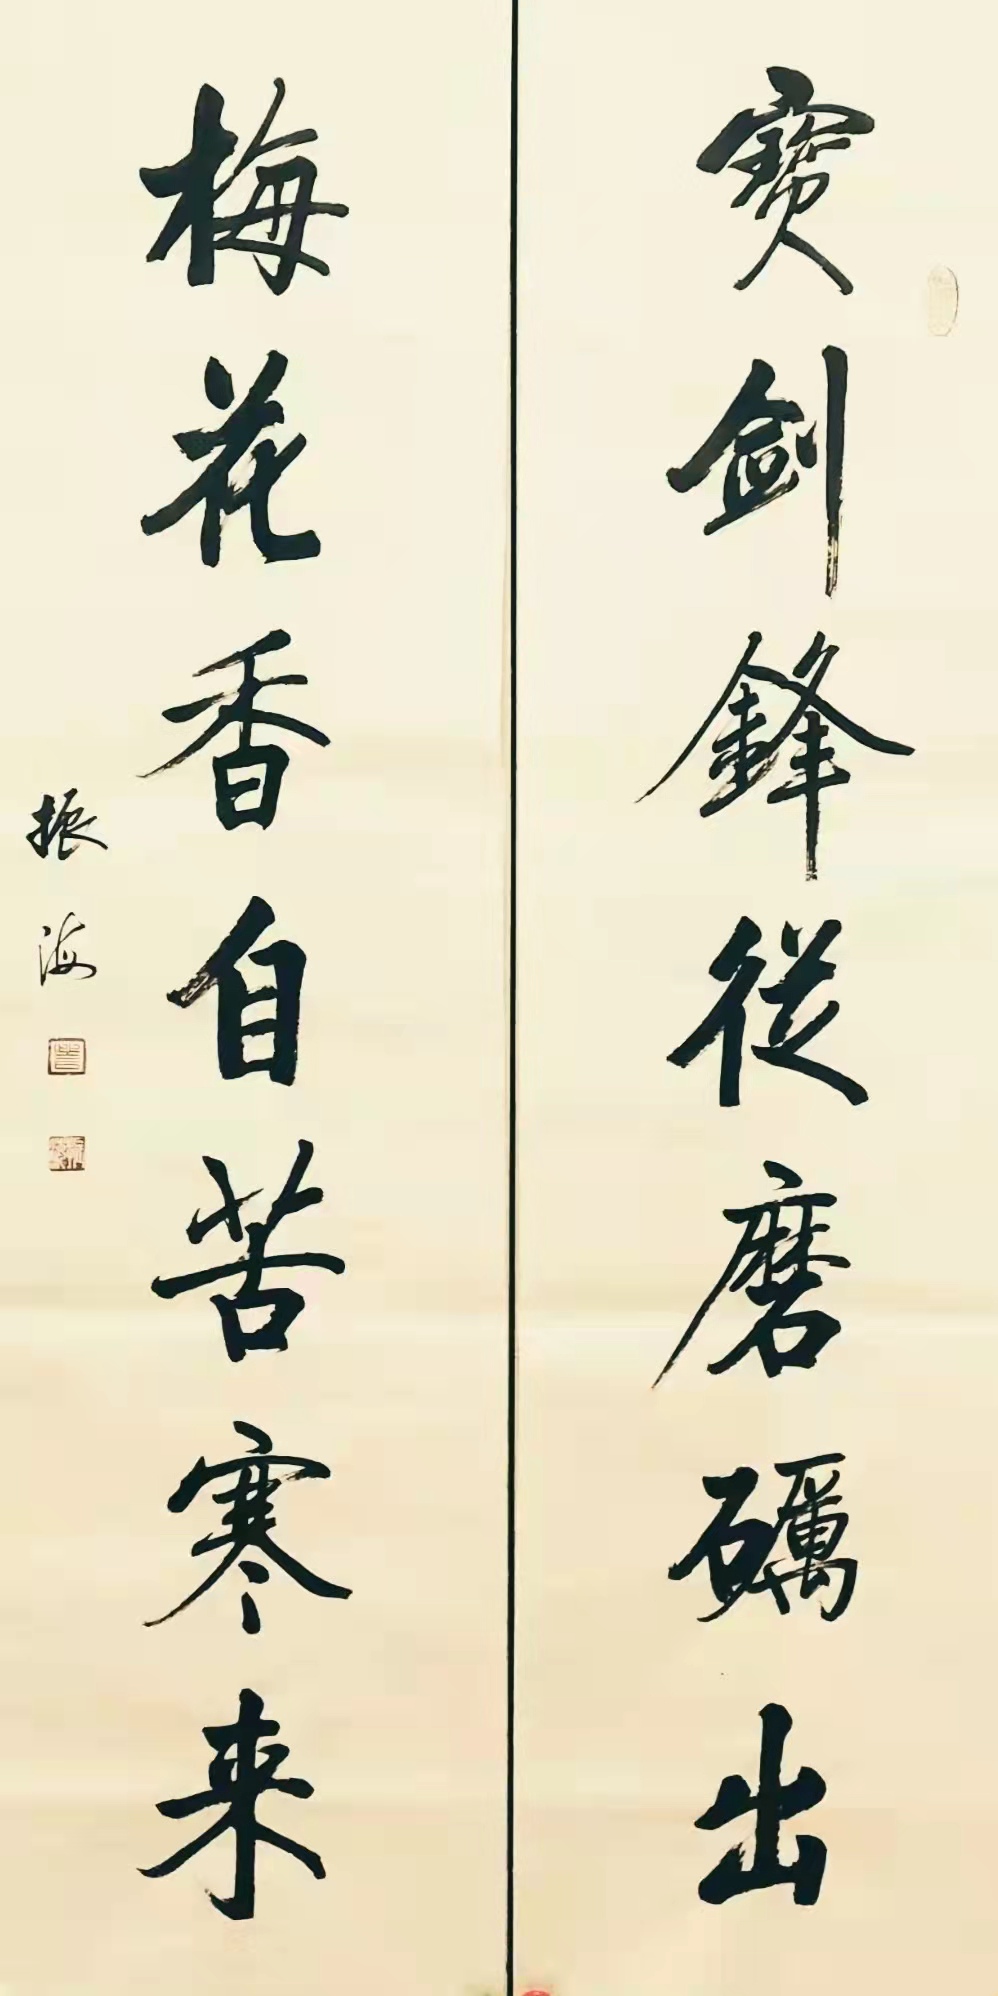 寳劍鋒從磨礪出
梅花香自苦寒来
振海